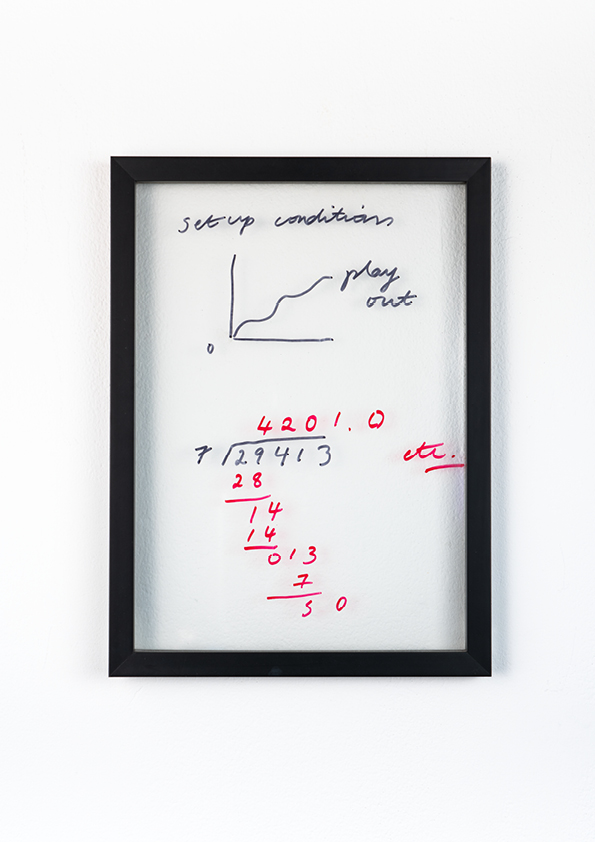 set up conditions
play
out
0
4201.0
7 29413
etc.
28
14
14
013
7
50